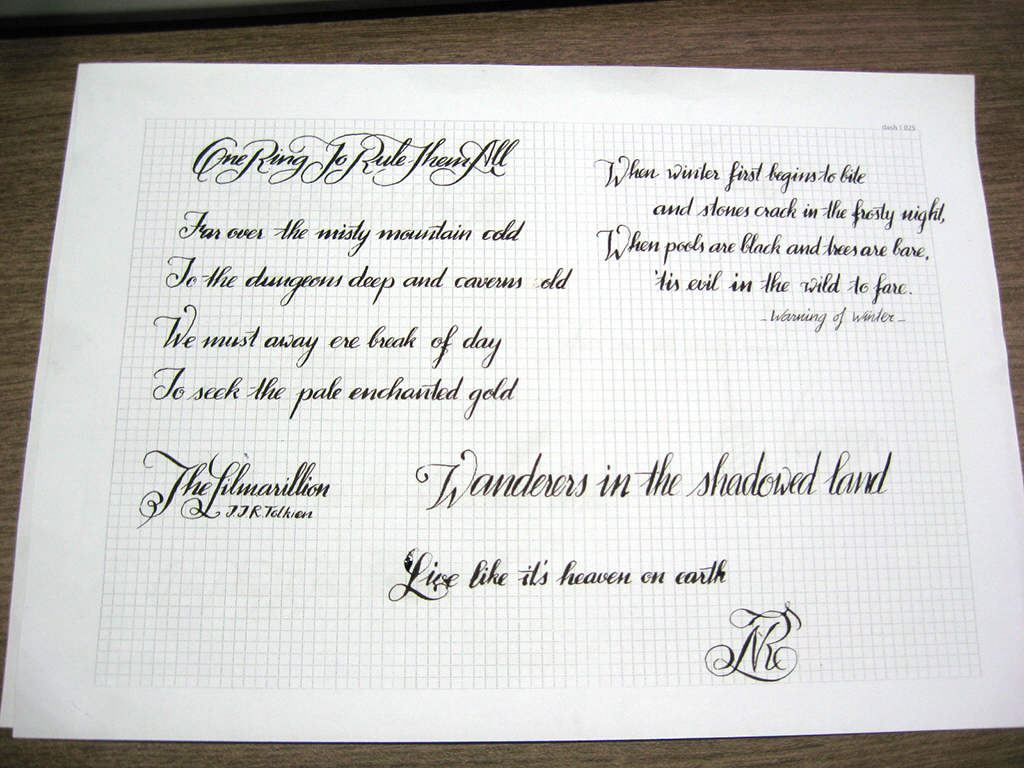 dash | 025
One Ring To Rule Them All
Far over the misty mountain cold
To the dungeons deep and caverns old
We must away ere break of day
To seek the pale enchanted gold
When winter first begins to bite
and stones crack in the frosty night,
When pools are black and trees are bare,
'tis evil in the wild to fare.
- Warning of Winter -
The Silmarillion
J J R. Tolkien
Wanderers in the shadowed land
Live like it's heaven on earth